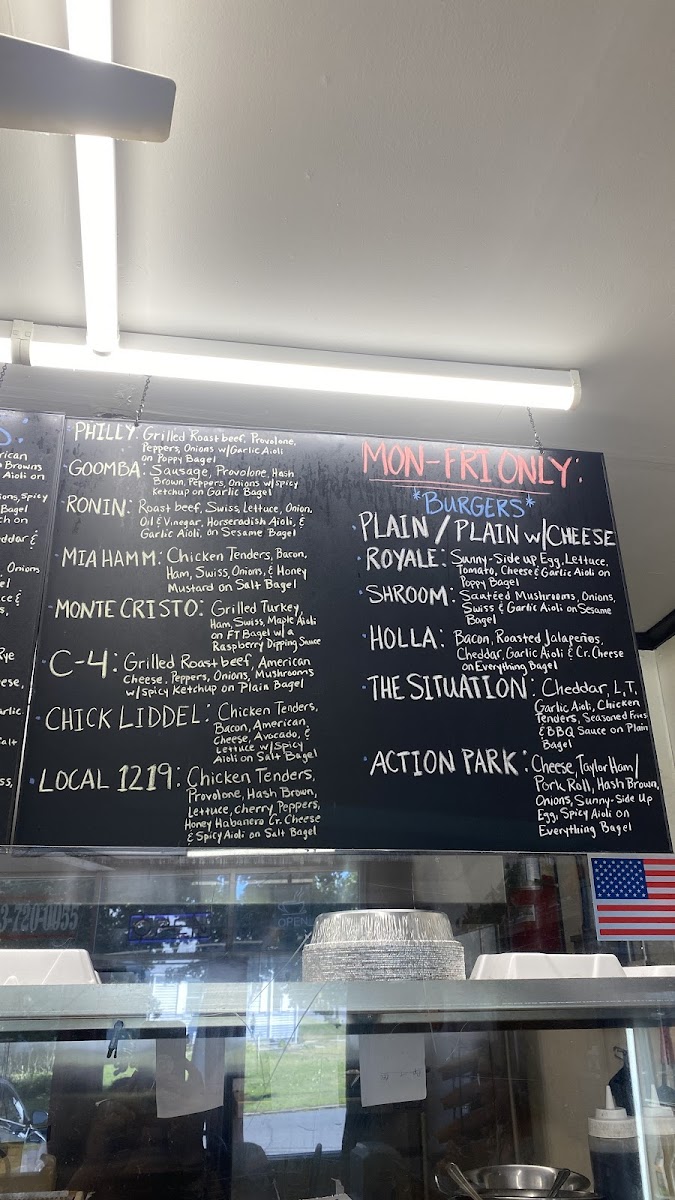 S:
rican
Browns
Aioli on
ions, Spicy
Bagel
ch on
eddar &
Onions
el
ce &
s,
Rye
eese,
arlic
Salt
ss,
PHILLY: Grilled Roastbeef, Provolone,
Peppers, Onions w/Garlic Aioli
on Poppy Bagel
GOOMBA: Sausage, Provolone, Hash
Brown, Peppers, Onions w/spicy
Ketchup on Garlic Bagel
RONIN: Roast beef, Swiss, Lettuce, Onion,
Oil & Vinegar, Horseradish Aioli, &
Garlic Aioli, on Sesame Bagel
MIA HAMM: Chicken Tenders, Bacon,
Ham, Swiss, Onions, & Honey
Mustard on Salt Bagel
MONTE CRISTO: Grilled Turkey,
Ham, Swiss, Maple Aioli
on FT Bagel w/ a
Raspberry Dipping Sauce
C-4: Grilled Roast beef, American
Cheese, Peppers, Onions, Mushrooms
w/spicy Ketchup on Plain Bagel
CHICK LIDDEL: Chicken Tenders,
Bacon, American,
Cheese, Avocado, &
Lettuce w/Spicy
Aioli on Salt Bagel
LOCAL 1219: Chicken Tenders,
Provolone, Hash Brown,
Lettuce, cherry Peppers,
Honey Habanero Cr. Cheese
& Spicy Aioli on Salt Bagel
MON-FRI ONLY:
*BURGERS*
PLAIN / PLAIN w/CHEESE
ROYALE: Sunny-Side up Egg, Lettuce,
Tomato, Cheese & Garlic Aioli on
Poppy Bagel
SHROOM: Sautéed Mushrooms, Onions,
Swiss & Garlic Aioli on Sesame
Bagel
HOLLA: Bacon, Roasted Jalapeños,
Cheddar, Garlic Aioli & Cr. Cheese
on Everything Bagel
THE SITUATION: Cheddar, L,T,
Garlic Aioli, Chicken
Tenders, Seasoned Fries
& BBQ Sauce on Plain
Bagel
ACTION PARK: Cheese, Taylor Ham/
Pork Roll, Hash Brown,
Onions, Sunny-Side Up
Egg, Spicy Aioli on
Everything Bagel
3-720-0055
OPEN